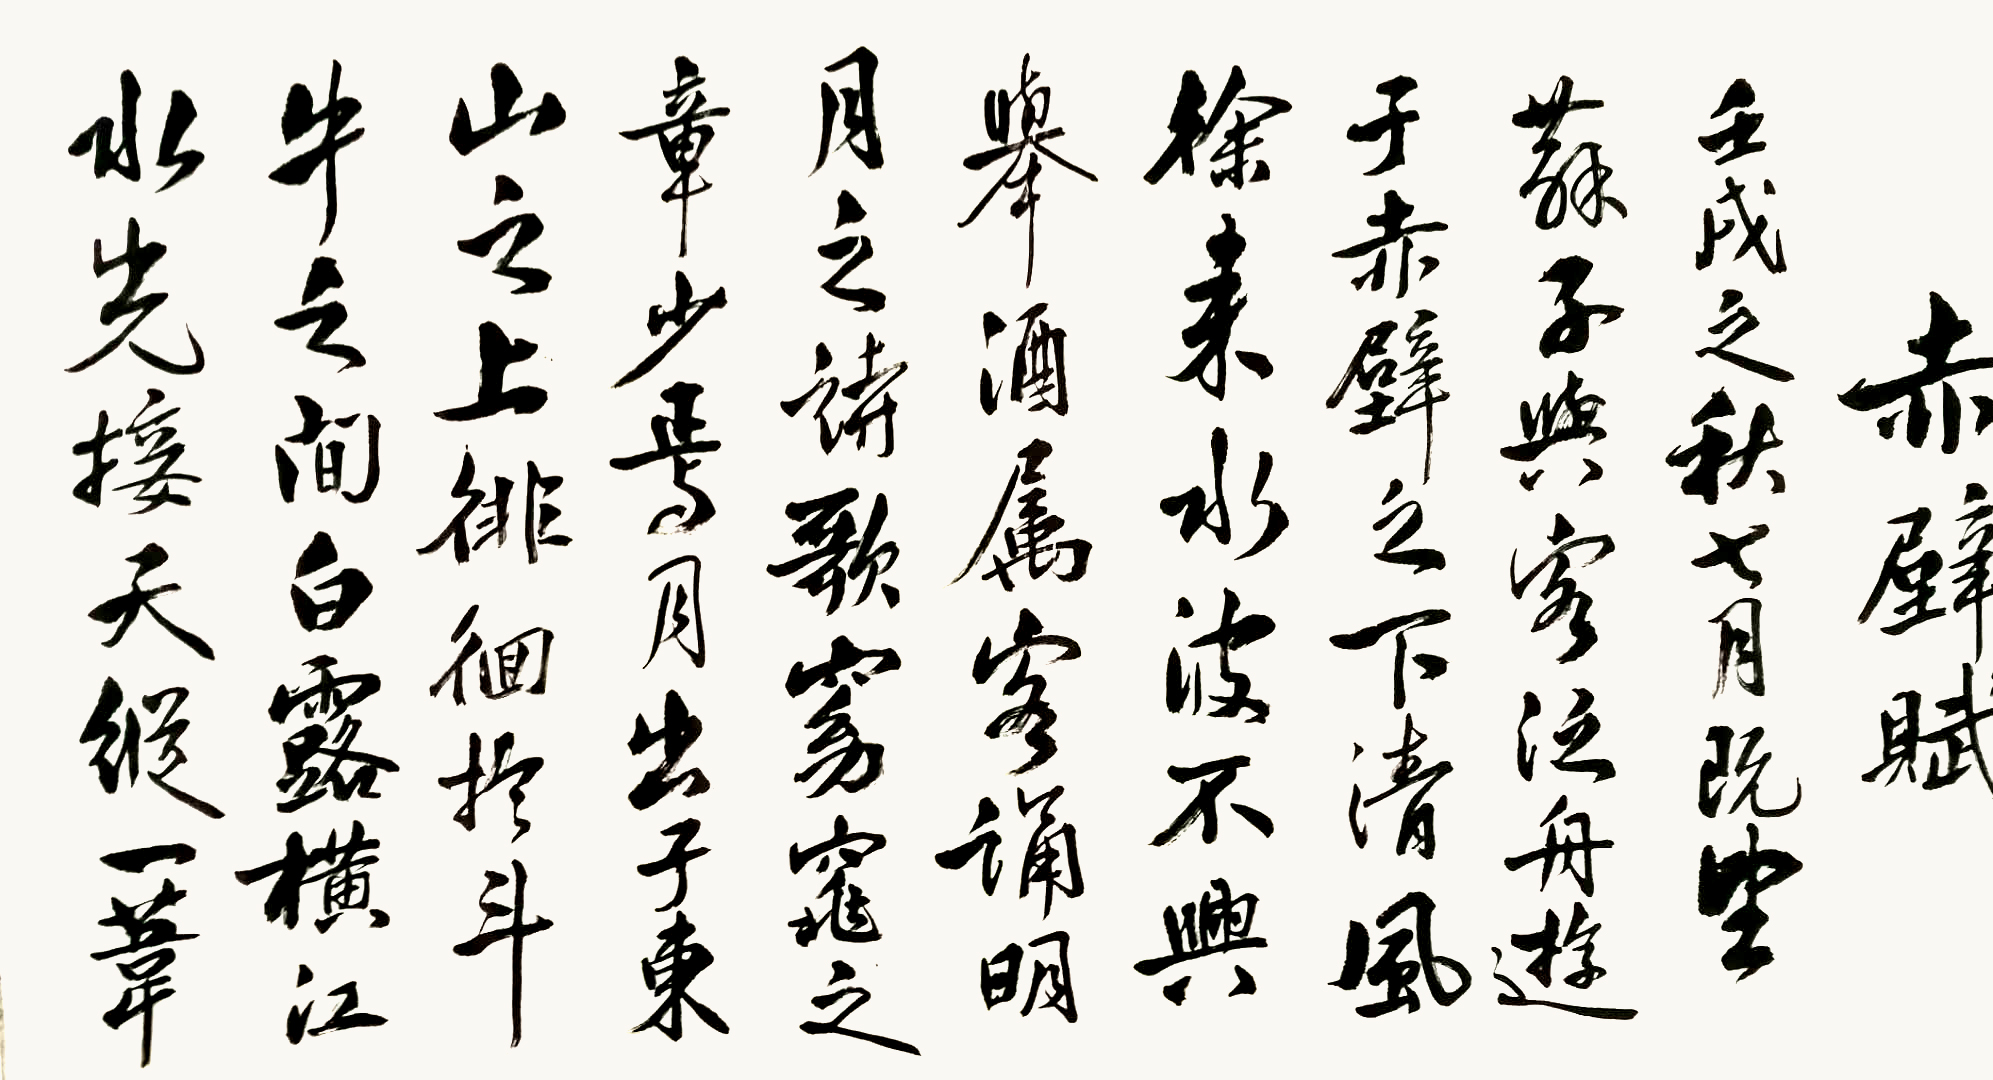 赤壁賦
壬戌之秋七月既望
蘇子與客泛舟遊
于赤壁之下清風
徐来水波不興
舉酒属客誦明
月之詩歌窈窕之
章少焉月出于東
山之上徘徊於斗
牛之间白露橫江
水光接天縱一葦